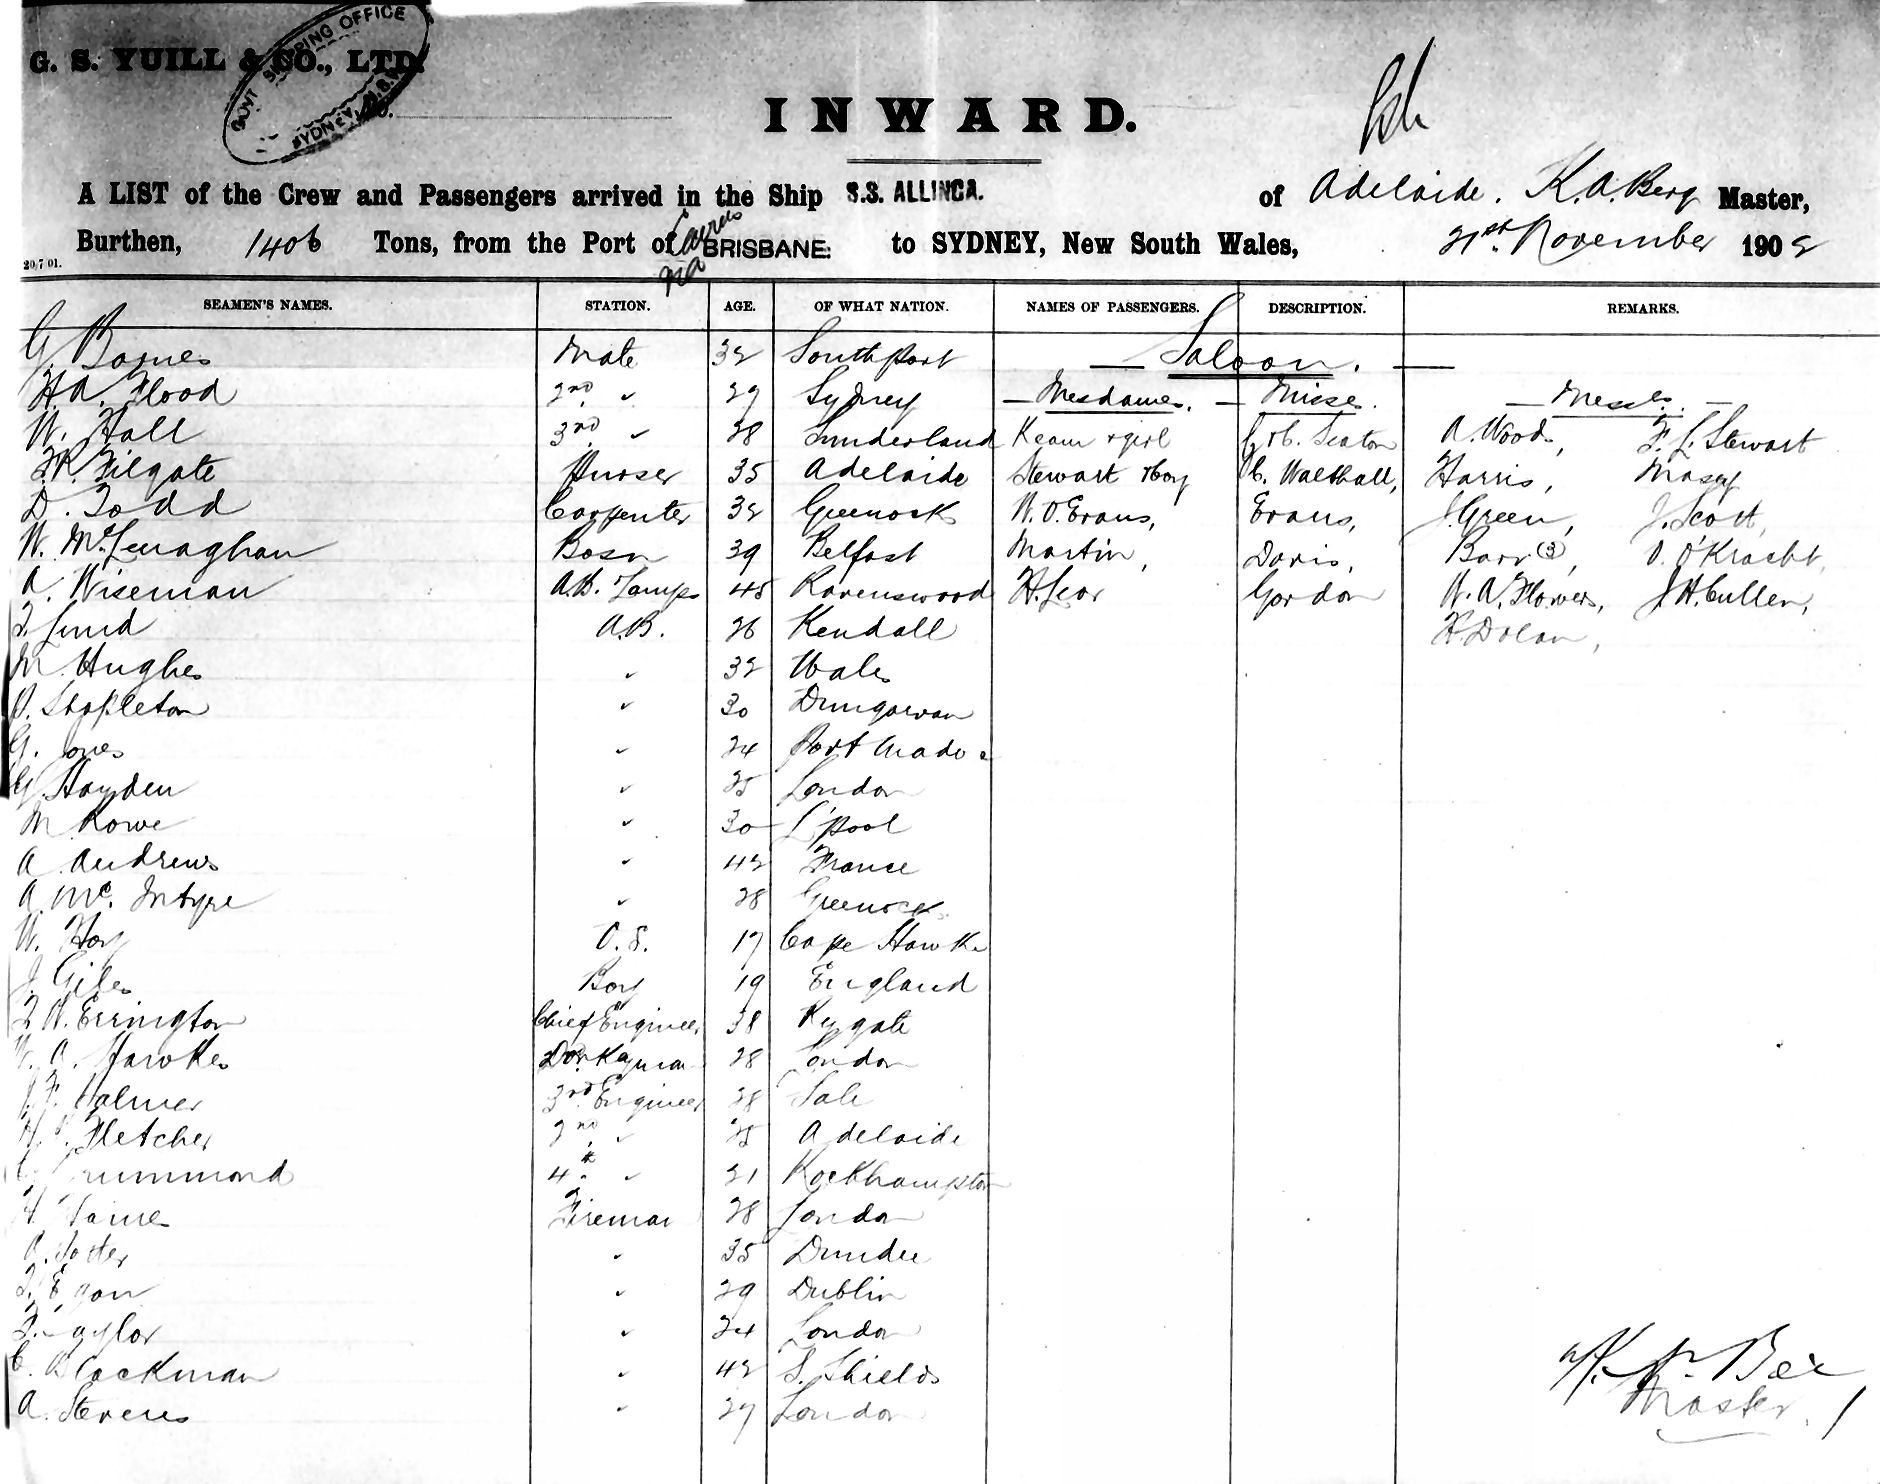 G. S. YUILL & CO., LTD.
GOVT SHIPPING OFFICE
SYDNEY N.S.W.
INWARD.
A LIST of the Crew and Passengers arrived in the Ship S.S. ALLINGA. of Adelaide. K.A. Berg Master,
Burthen, 1406 Tons, from the Port of Cairns via BRISBANE. to SYDNEY, New South Wales, 21st November 1902
20/7/01.
SEAMEN'S NAMES. STATION. AGE. OF WHAT NATION. NAMES OF PASSENGERS. DESCRIPTION. REMARKS.
G. Barnes Mate 32 Southport — Saloon. —
H.A. Flood 2nd " 29 Sydney — Mesdames. — Misses. — Messrs. —
W. Hall 3rd " 28 Sunderland Keam & girl Seaton A. Wood, F. L. Stewart
Filgate Purser 35 Adelaide Stewart & boy C. Walthall, Harris, Macey
D. Todd Carpenter 32 Greenock W.O. Evans, Evans, J. Green, J. Scott,
W. McLenaghan Bosn 39 Belfast Martin, Davis, Barr (3), O. O'Kracht,
A. Wiseman A.B. Lamps 45 Ravenswood H. Lear Gordon W. A. Flowers, J. H. Cullen,
T. Lund A.B. 26 Kendall H. Dolan,
M. Hughes " 32 Wales
Stapleton " 30 Dungarvan
G. Jones " 24 Port Madoc
G. Hayden " 25 London
M. Rowe " 30 L'pool
A. Andrews " 42 France
A. McIntyre " 28 Greenock
W. Hoy O.S. 17 Cape Hawke
J. Giles Boy 19 England
T. W. Errington Chief Engineer 38 Rygate
W. A. Hawkes Donkeyman 28 London
J. F. Palmer 3rd Engineer 28 Sale
Fletcher 2nd " 25 Adelaide
Drummond 4th " 21 Rockhampton
H. Fireman 28 London
" 35 Dundee
T. Egan " 29 Dublin
T. Taylor " 24 London
C. Blackman " 42 S. Shields
A. Stevens " 27 London
Master